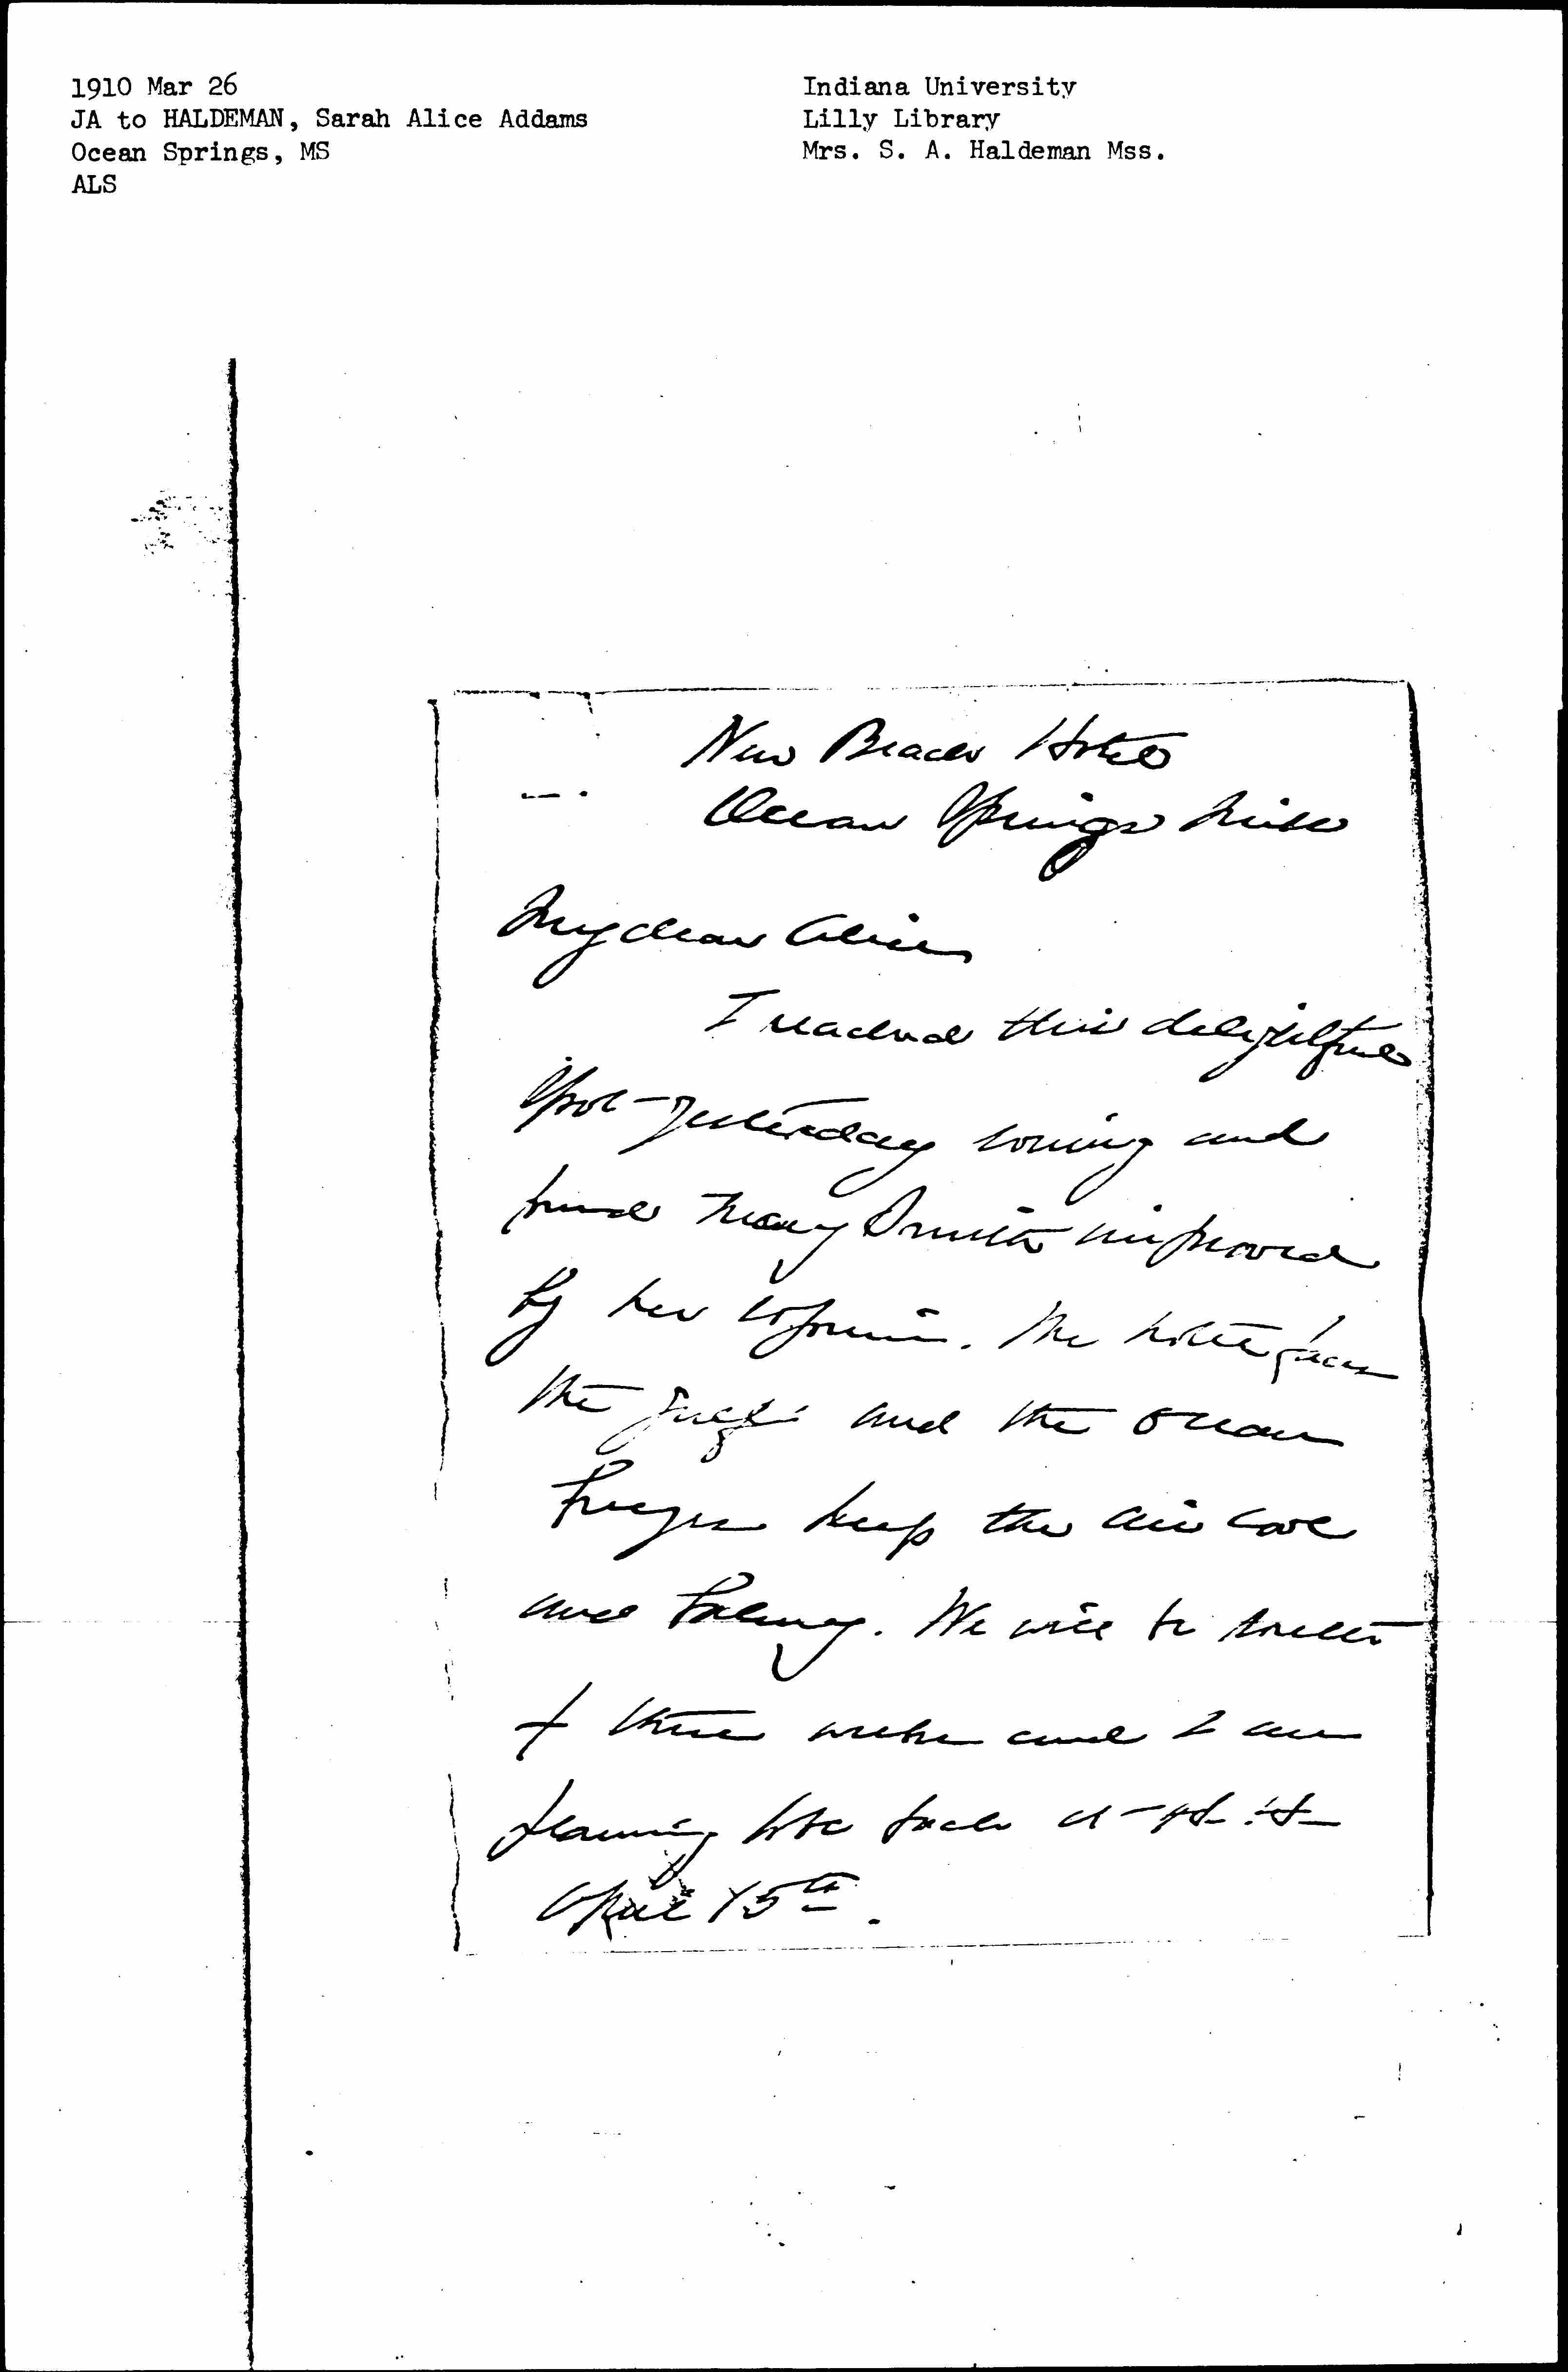 1910 Mar 26
JA to HALDEMAN, Sarah Alice Addams
Ocean Springs, MS
ALS
Indiana University
Lilly Library
Mrs. S. A. Haldeman Mss.
New Beach Hotel
Ocean Springs Miss
My dear Alice
I reached this delightful
spot yesterday and
found Mary Smith improved
by her sojourn. The hotel faces
the gulf and the ocean
breezes keep the air cool
and balmy. We will be here
three weeks and I am
planning to be back at H. H.
April 15th.